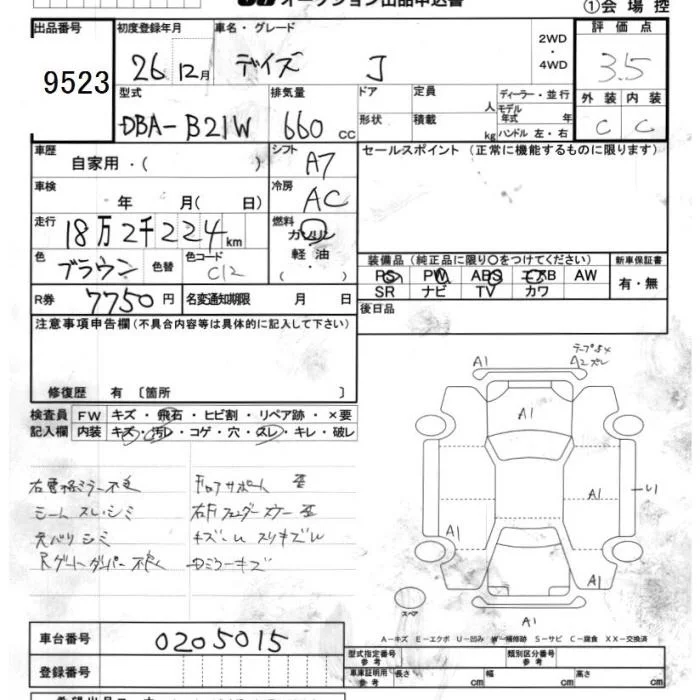 オークション出品申込書
①会場控
出品番号
9523
初度登録年月
26 12月
車名・グレード
デイズ J
2WD
・
4WD
評価点
3.5
外装 内装
C C
型式
DBA-B21W
排気量
660 cc
ドア
形状
定員
人
積載
kg
ディーラー・並行
モデル
年式 年
ハンドル 左・右
車歴
自家用・( )
シフト
A7
車検
年 月( 日)
冷房
AC
走行
18万2千224km
燃料
ガソリン
軽油
( ・ )
色
ブラウン
色替
色コード
C12
R券
7750円
名変通知期限 月 日
セールスポイント (正常に機能するものに限ります)
装備品 (純正品に限り○をつけてください)
PS PW ABS エアB AW
SR ナビ TV カワ
新車保証書
有・無
後日品
注意事項申告欄(不具合内容等は具体的に記入して下さい)
修復歴 有 〔箇所 〕
検査員
記入欄
FW キズ・飛石・ヒビ割・リペア跡・×要
内装 キズ・汚レ・コゲ・穴・スレ・キレ・破レ
シート スレ・シミ
天バリ シミ
Rゲートダンパー不良
ロアサポート 歪
右Fフェンダーステー 歪
ミラーキズ
A1
A2
A1
A1
A1
A1
スペア
A-キズ E-エクボ U-凹み W-補修跡 S-サビ C-腐食 XX-交換済
車台番号
0205015
登録番号
型式指定番号
参考
類別区分番号
参考
車車証明用
参考
長さ cm
幅 cm
高さ cm